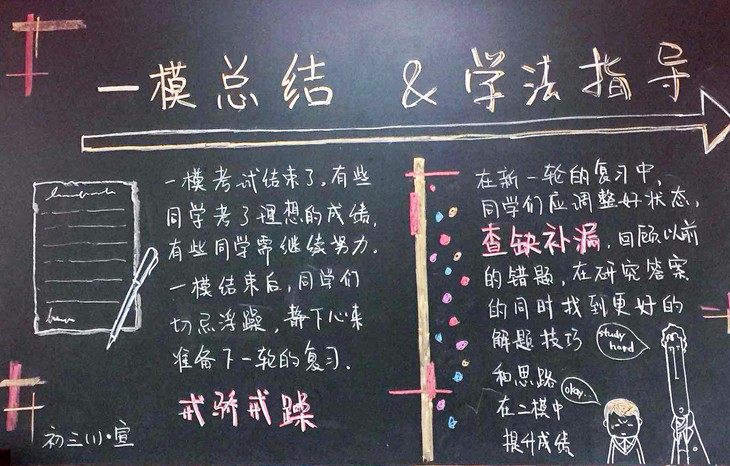 一模总结 & 学法指导
一模考试结束了,有些
同学考了理想的成绩,
有些同学需继续努力.
一模结束后,同学们
切忌浮躁,静下心来
准备下一轮的复习.
戒骄戒躁
初三(1)·宣
在新一轮的复习中,
同学们应调整好状态,
查缺补漏,回顾以前
的错题,在研究答案
的同时找到更好的
解题技巧
和思路
在二模中
提升成绩
study
hard
okay...